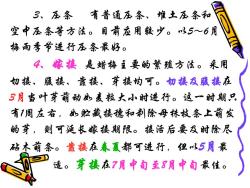 3、压条  有普通压条、堆土压条和
空中压条等方法。目前应用较少。以5~6月
梅雨季节进行压条最好。
4、嫁接 是蜡梅主要的繁殖方法。采用
切接、腹接、靠接、芽接均可。切接及腹接在
3月当叶芽萌动如麦粒大小时进行。这一时期只
有1周左右,如贮藏接穗和剥除母株枝条上萌发
的芽,则可延长嫁接期限。接活后要及时除尽
砧木萌条。靠接在春夏都可进行,但以5月最
适。芽接在7月中旬至8月中旬最佳。